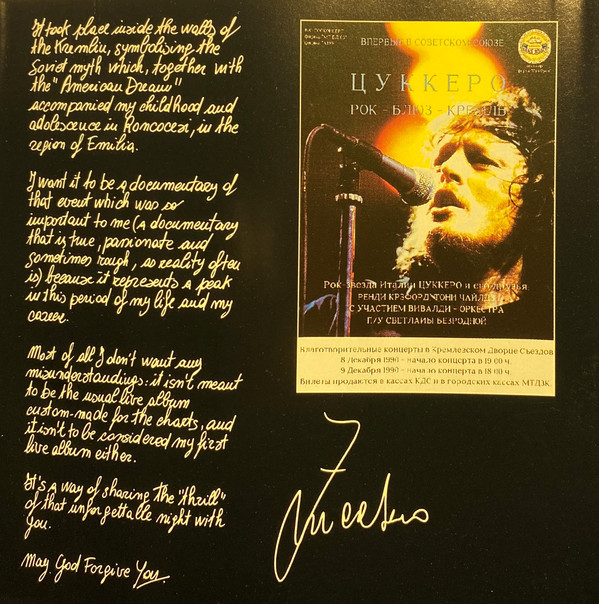 It took place inside the walls of
the Kremlin, symbolising the
Soviet myth which, together with
the "American Dream"
accompanied my childhood and
adolescence in Roncocesi, in the
region of Emilia.
I want it to be a documentary of
that event which was so
important to me (a documentary
that is true, passionate and
sometimes rough, as reality often
is) because it represents a peak
in this period of my life and my
career.
Most of all I don't want any
misunderstandings: it isn't meant
to be the usual live album
custom-made for the charts, and
it isn't to be considered my first
live album either.
It's a way of sharing the "thrill"
of that unforgettable night with
you.
May God Forgive You.
ВПЕРВЫЕ В СОВЕТСКОМ СОЮЗЕ
ЦУККЕРО
РОК - БЛЮЗ - КРЕМЛЬ
Рок-звезда Италии ЦУККЕРО и его друзья
РЕНДИ КРЭФОРД, ТОНИ ЧАЙЛДС
С УЧАСТИЕМ ВИВАЛЬДИ - ОРКЕСТРА
П/У СВЕТЛАНЫ БЕЗРОДНОЙ
Благотворительные концерты в Кремлевском Дворце Съездов
8 Декабря 1990 - начало концерта в 19 00 ч.
9 Декабря 1990 - начало концерта в 18 00 ч.
Билеты продаются в кассах КДС и в городских кассах МТДЗК.
Zucchero